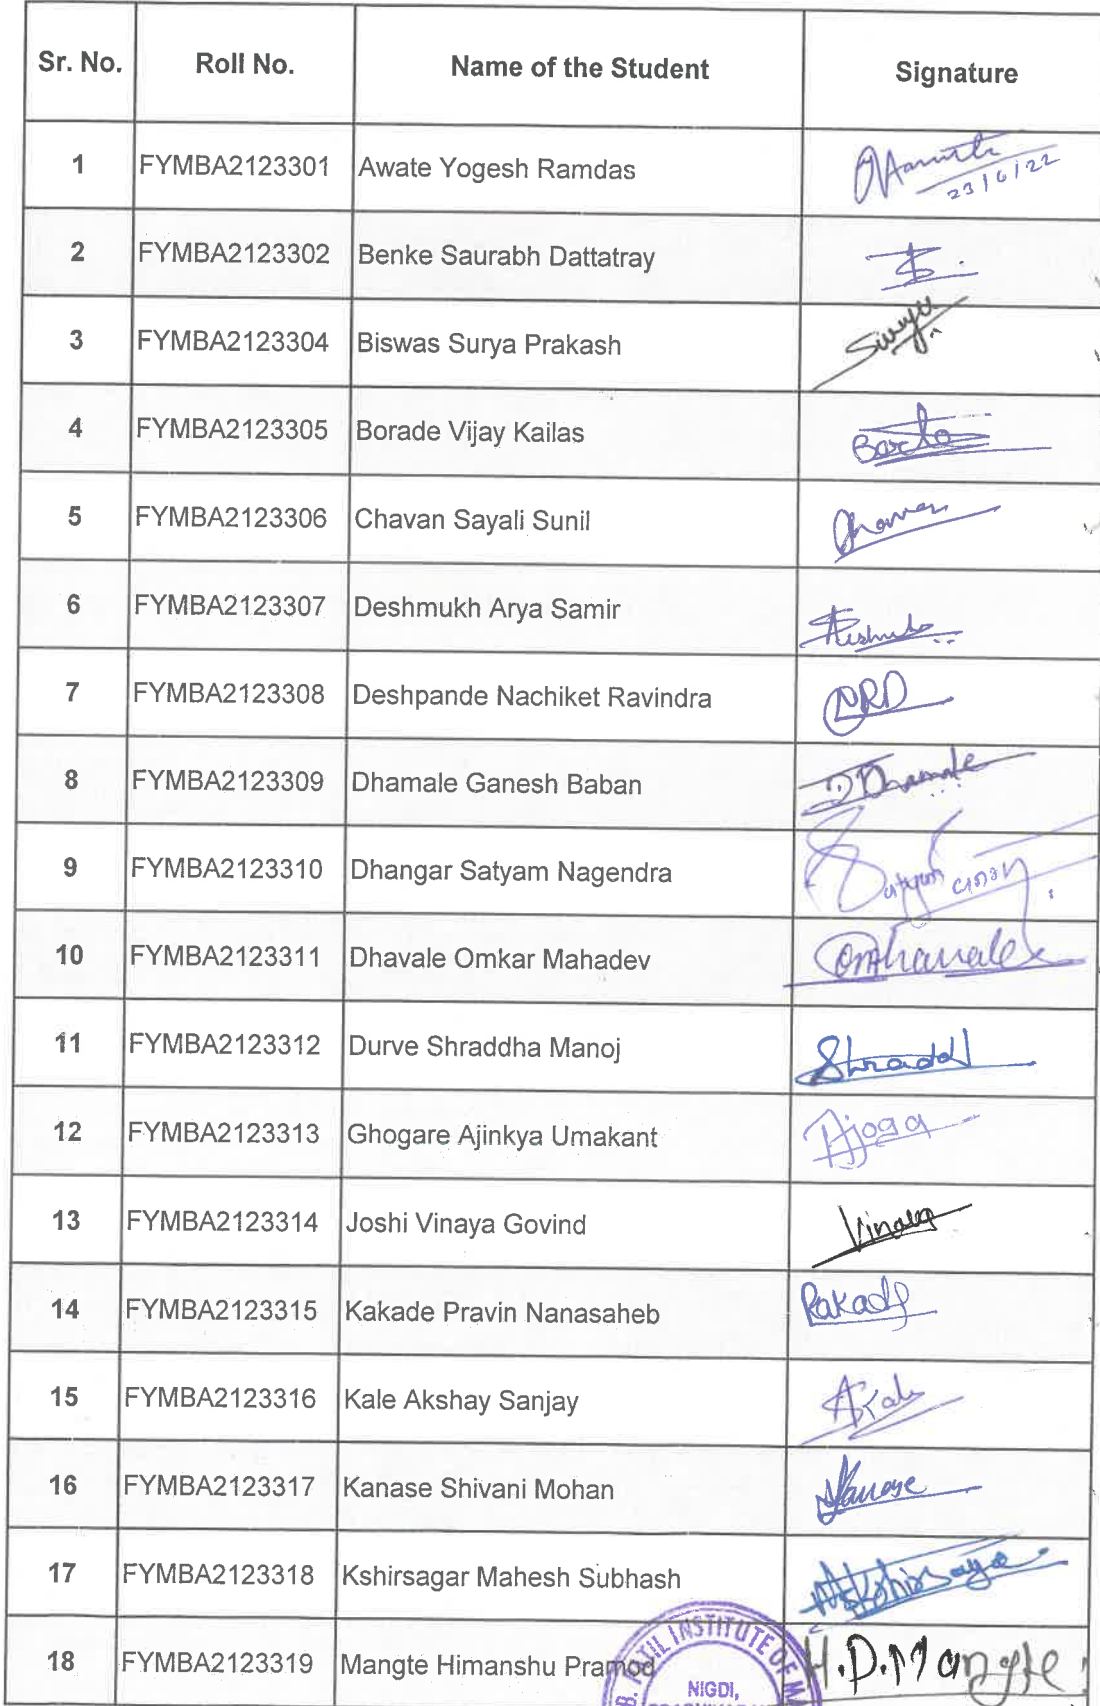 Sr. No. Roll No. Name of the Student Signature
1 FYMBA2123301 Awate Yogesh Ramdas
23/6/22
2 FYMBA2123302 Benke Saurabh Dattatray
3 FYMBA2123304 Biswas Surya Prakash Surya
4 FYMBA2123305 Borade Vijay Kailas
5 FYMBA2123306 Chavan Sayali Sunil
6 FYMBA2123307 Deshmukh Arya Samir
7 FYMBA2123308 Deshpande Nachiket Ravindra NRD
8 FYMBA2123309 Dhamale Ganesh Baban Dhamale
9 FYMBA2123310 Dhangar Satyam Nagendra Satyam
10 FYMBA2123311 Dhavale Omkar Mahadev
11 FYMBA2123312 Durve Shraddha Manoj
12 FYMBA2123313 Ghogare Ajinkya Umakant
13 FYMBA2123314 Joshi Vinaya Govind Vinaya
14 FYMBA2123315 Kakade Pravin Nanasaheb
15 FYMBA2123316 Kale Akshay Sanjay AKale
16 FYMBA2123317 Kanase Shivani Mohan
17 FYMBA2123318 Kshirsagar Mahesh Subhash
18 FYMBA2123319 Mangte Himanshu Pramod H.D.Mangte
INSTITUTE OF
NIGDI,